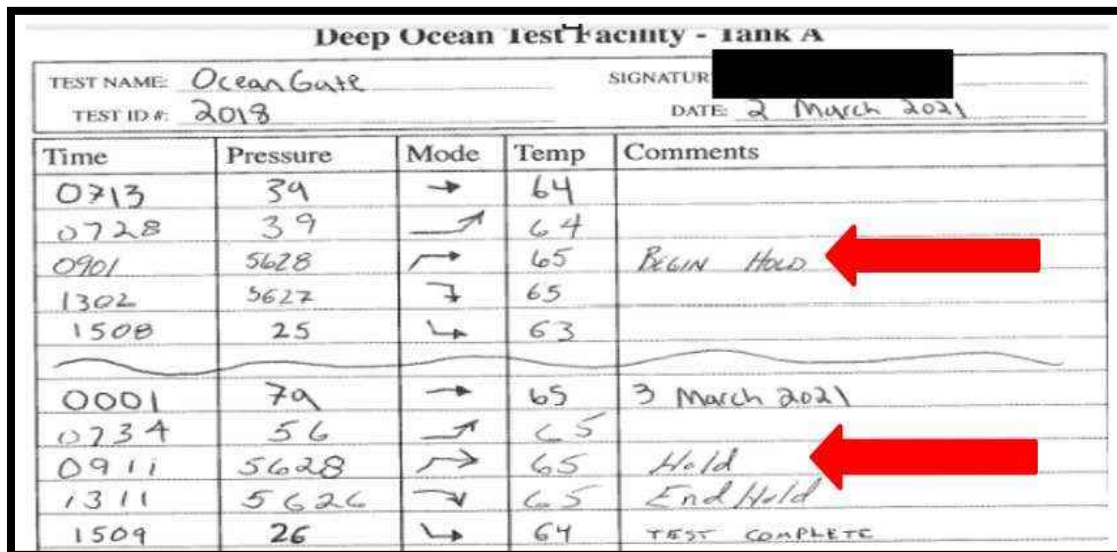 Deep Ocean Test Facility - Tank A
TEST NAME: OceanGate SIGNATUR
TEST ID #: 2018 DATE: 2 March 2021
Time Pressure Mode Temp Comments
0713 39 → 64
0728 39 64
0901 5628 65 BEGIN HOLD
1302 5627 65
1508 25 63
0001 79 → 65 3 March 2021
0734 56 65
0911 5628 65 Hold
1311 5626 65 End Hold
1509 26 64 TEST COMPLETE